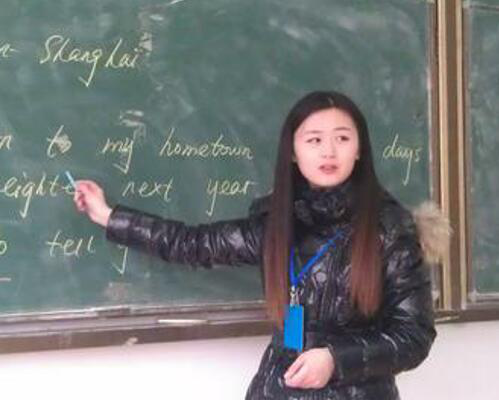 n Shanghai
n to my hometown days
eight next year
o tell y